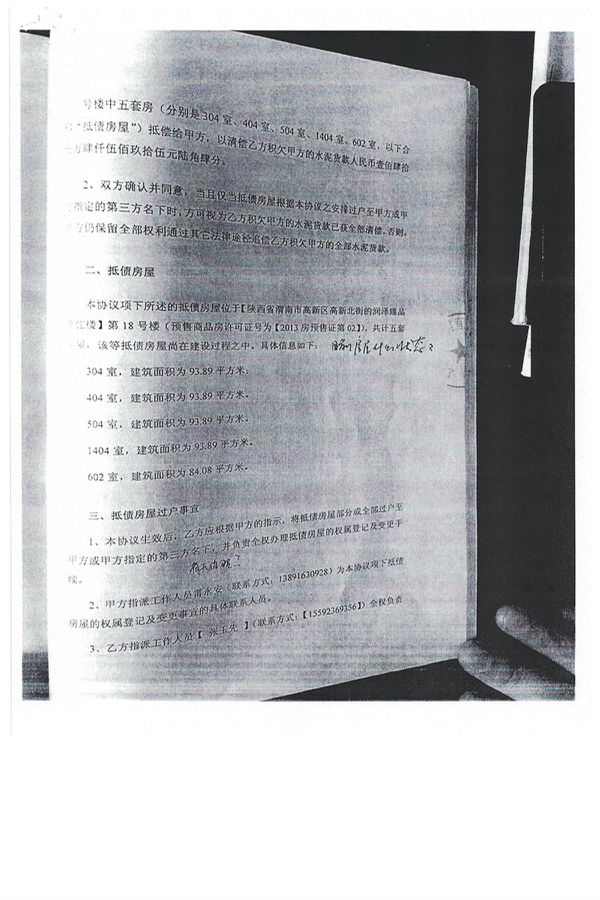 号楼中五套房（分别是304室、404室、504室、1404室、602室，以下合
“抵债房屋”）抵偿给甲方，以清偿乙方积欠甲方的水泥货款人民币壹佰肆拾
万肆仟伍佰玖拾伍元陆角肆分。
2、双方确认并同意，当且仅当抵债房屋根据本协议之安排过户至甲方或甲
指定的第三方名下时，方可视为乙方积欠甲方的水泥货款已获全部清偿，否则，
方仍保留全部权利通过其它法律途径追偿乙方积欠甲方的全部水泥货款。
二、抵债房屋
本协议项下所述的抵债房屋位于【陕西省渭南市高新区高新北街的润泽臻品
楼】第18号楼（预售商品房许可证号为【2013房预售证第02】），共计五套
屋，该等抵债房屋尚在建设过程之中。具体信息如下：
304室，建筑面积为93.89平方米；
404室，建筑面积为93.89平方米。
504室，建筑面积为93.89平方米。
1404室，建筑面积为93.89平方米。
602室，建筑面积为84.08平方米。
三、抵债房屋过户事宜
1、本协议生效后，乙方应根据甲方的指示，将抵债房屋部分或全部过户至
甲方或甲方指定的第三方名下，并负责全权办理抵债房屋的权属登记及变更手
续。
2、甲方指派工作人员雷永安（联系方式：13891630928）为本协议项下抵债
房屋的权属登记及变更事宜的具体联系人员。
3、乙方指派工作人员【 张玉先 】（联系方式：【15592369356】）全权负责